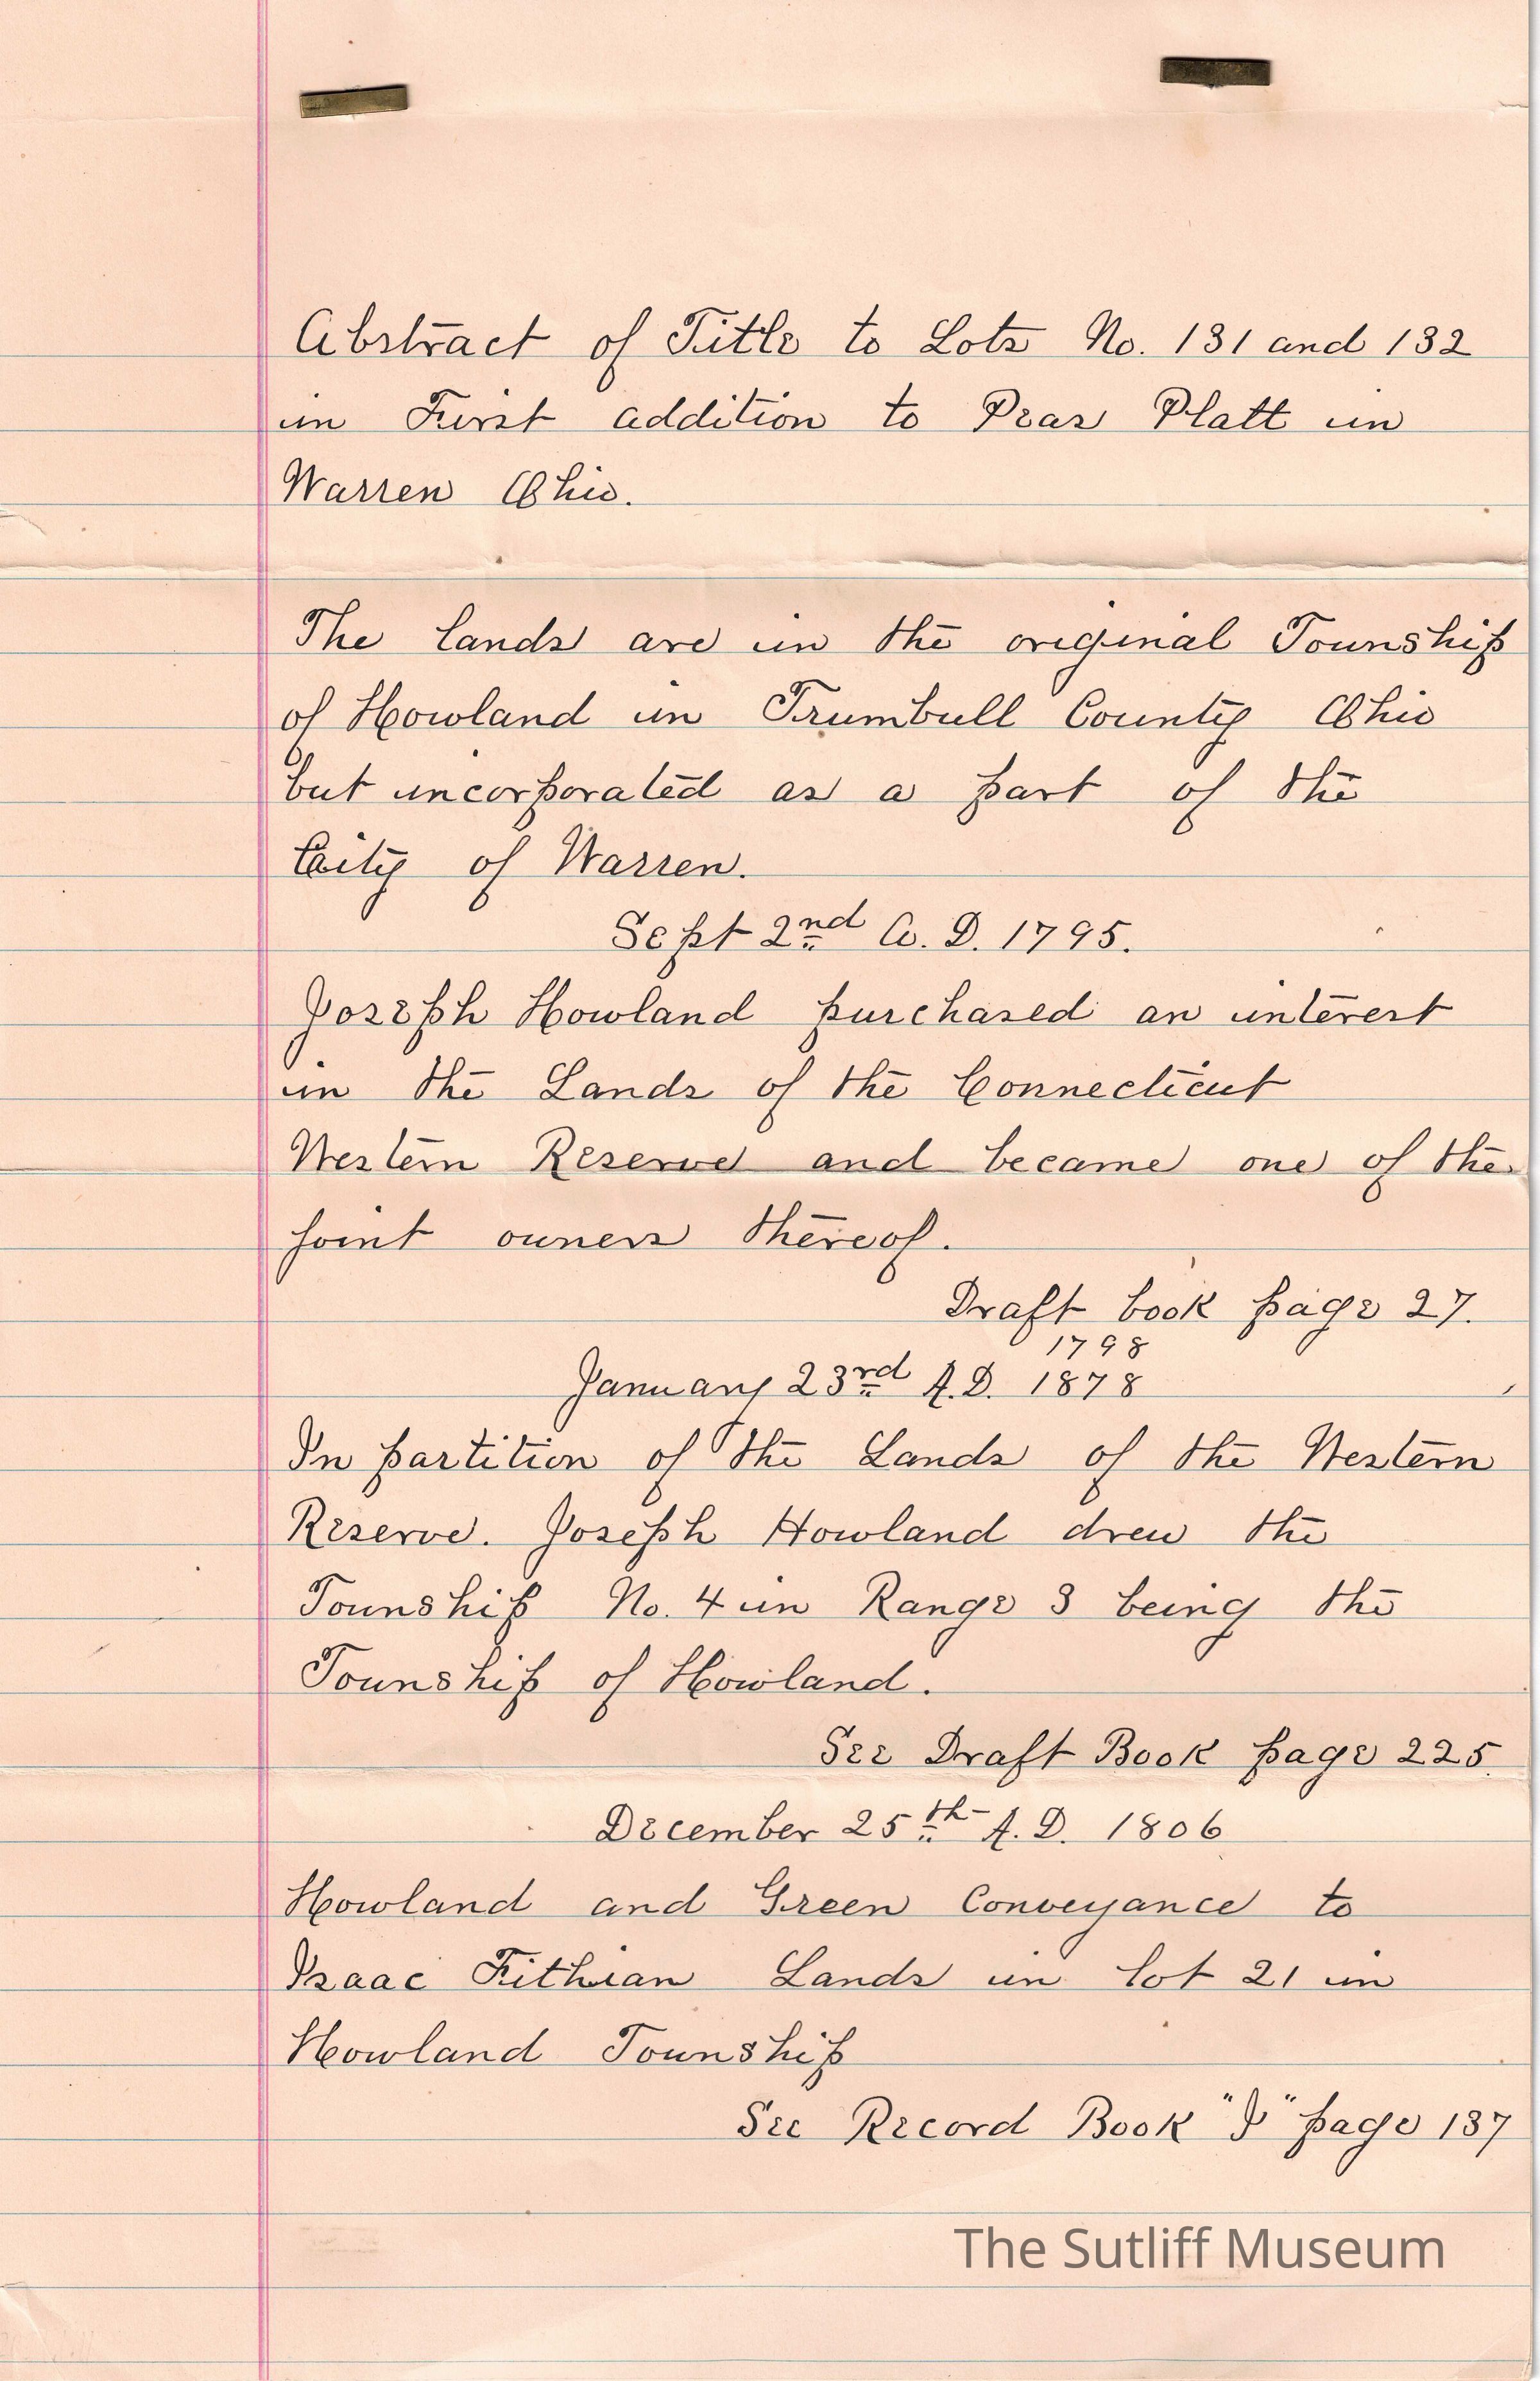 Abstract of Title to Lots No. 131 and 132
in First addition to Pras Platt in
Warren Ohio.
The lands are in the original Township
of Howland in Trumbull County Ohio
but incorporated as a part of the
City of Warren.
Sept 2nd A. D. 1795.
Joseph Howland purchased an interest
in the Lands of the Connecticut
Western Reserve and became one of the
joint owners thereof.
Draft book page 27.
1798
January 23rd A. D. 1878
In partition of the Lands of the Western
Reserve. Joseph Howland drew the
Township No. 4 in Range 3 being the
Township of Howland.
See Draft Book page 225
December 25th A. D. 1806
Howland and Green Conveyance to
Isaac Fithian Lands in lot 21 in
Howland Township
See Record Book " " page 137
The Sutliff Museum